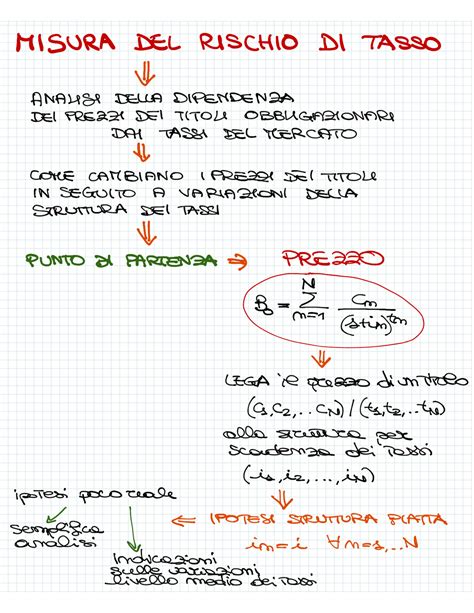 MISURA DEL RISCHIO DI TASSO
ANALISI DELLA DIPENDENZA
DEI PREZZI DEI TITOLI OBBLIGAZIONARI
DAI TASSI DEL MERCATO
COME CAMBIANO I PREZZI DEI TITOLI
IN SEGUITO A VARIAZIONI DELLA
STRUTTURA DEI TASSI
PUNTO DI PARTENZA → PREZZO
B₀ = Σ_{n=1}^{N} Cn / (1+in)^{tn}
LEGA il prezzo di un titolo
(C1, C2, ... CN) / (t1, t2, .. tN)
alla struttura per
scadenza dei tassi
(i1, i2, ..., iN)
ipotesi poco reale
⇐ IPOTESI STRUTTURA PIATTA
in = i ∀n=1,..N
semplifica
analisi
indicazioni
sulle variazioni
livello medio dei tassi